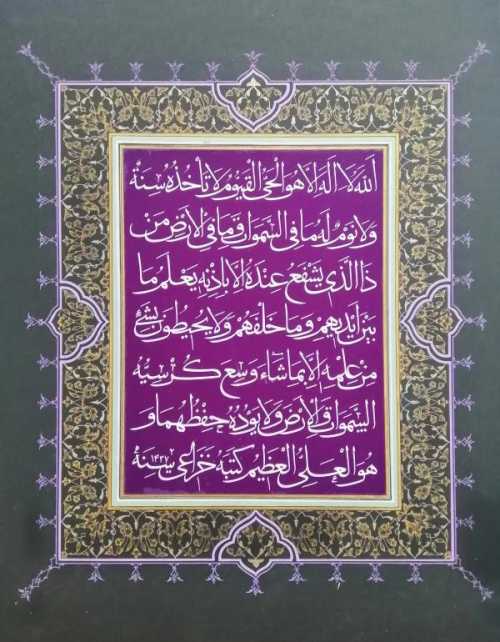 اَللهُ لَا اِلَهَ اِلَّا هُوَ الْحَيُّ الْقَيُّومُ لَا تَأْخُذُهُ سِنَةٌ
وَلَا نَوْمٌ لَهُ مَا فِي السَّمَوَاتِ وَمَا فِي الْاَرْضِ مَنْ
ذَا الَّذِي يَشْفَعُ عِنْدَهُ اِلَّا بِاِذْنِهِ يَعْلَمُ مَا
بَيْنَ اَيْدِيهِمْ وَمَا خَلْفَهُمْ وَلَا يُحِيطُونَ بِشَيْءٍ
مِنْ عِلْمِهِ اِلَّا بِمَا شَاءَ وَسِعَ كُرْسِيُّهُ
السَّمَوَاتِ وَالْاَرْضَ وَلَا يَؤُدُهُ حِفْظُهُمَا وَ
هُوَ الْعَلِيُّ الْعَظِيمُ كَتَبَهُ خزاعی سَنَةُ ۱۴۲۷